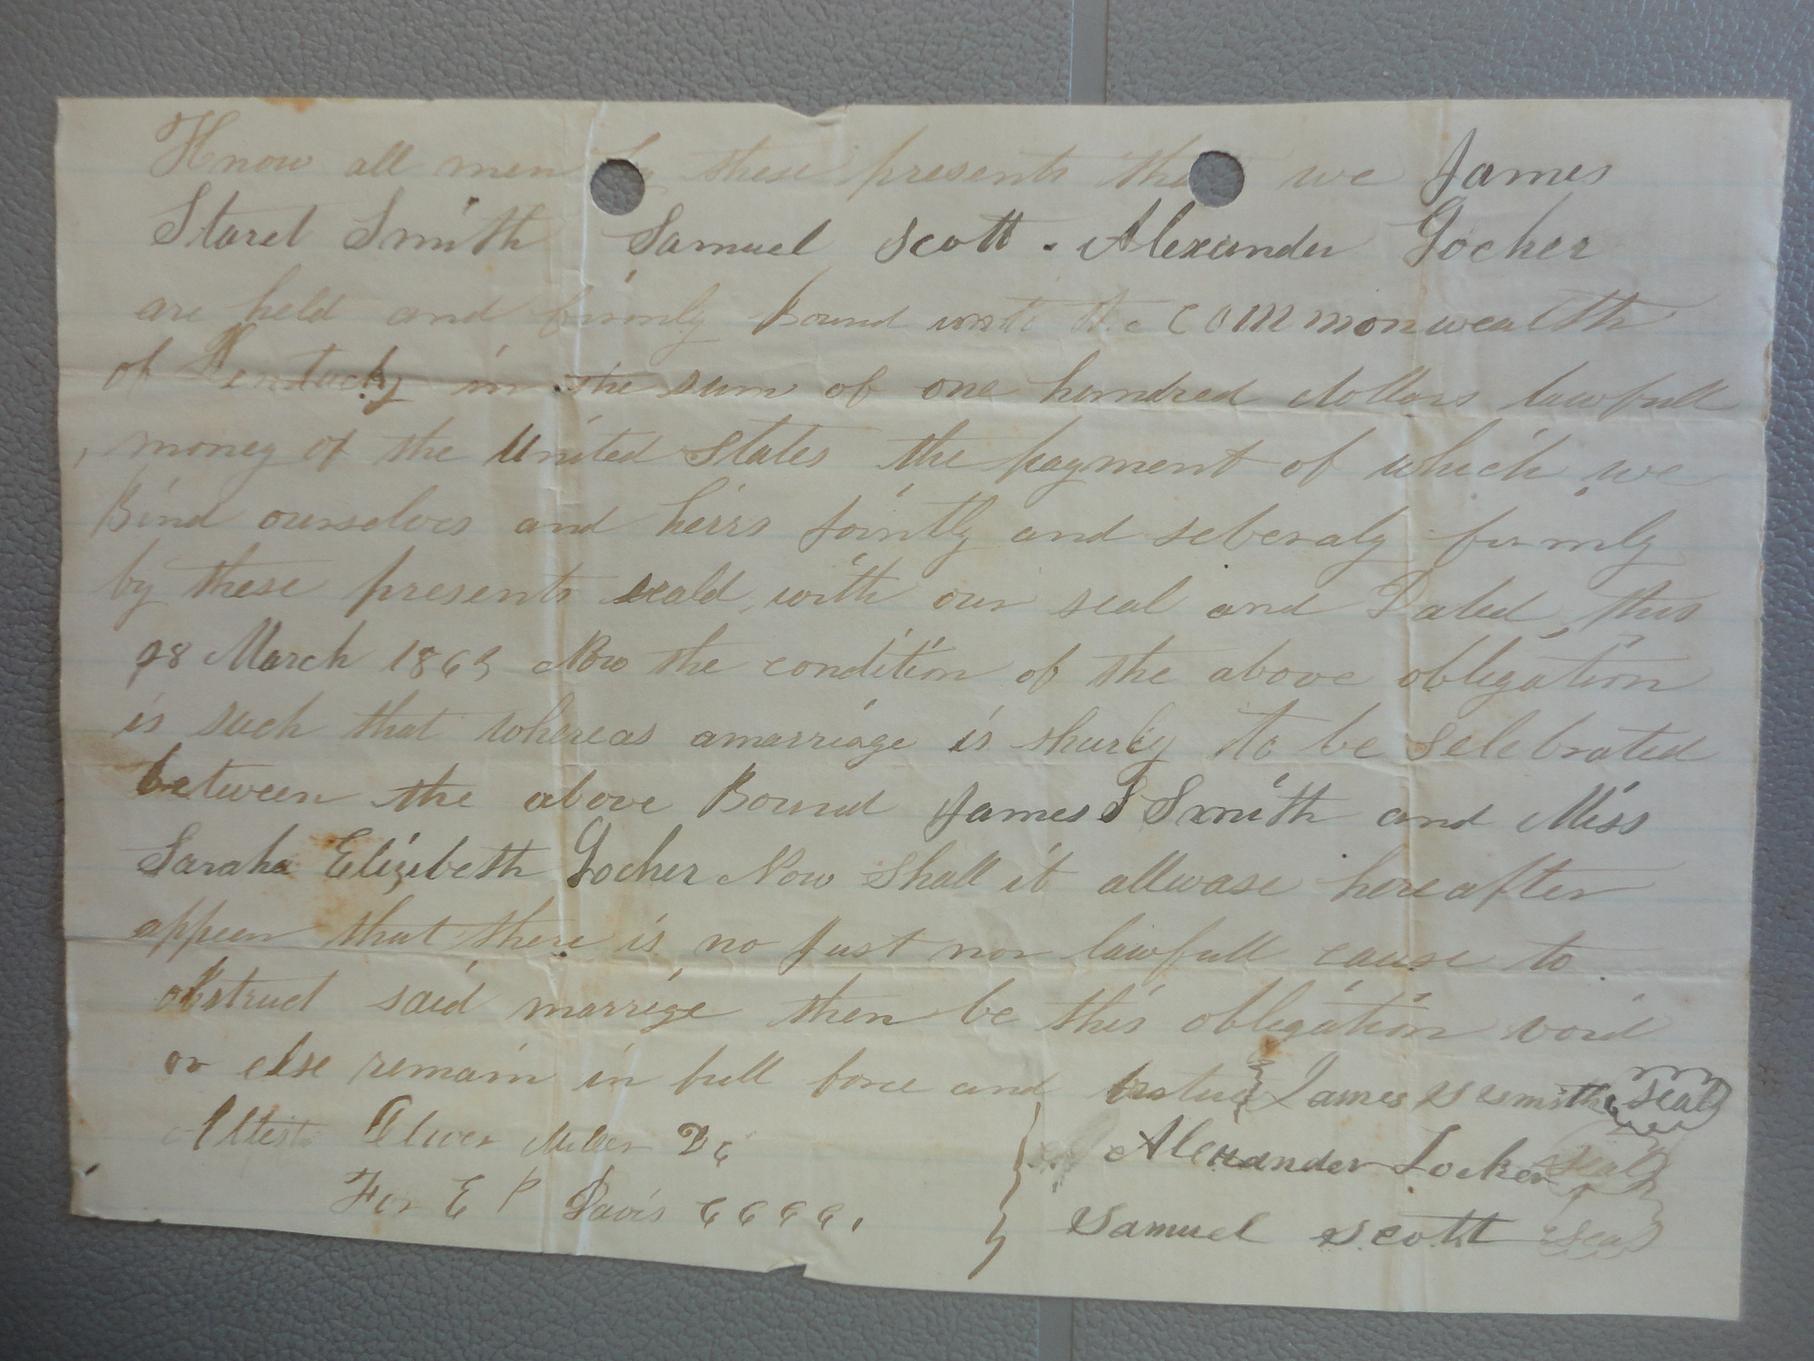 Know all men by these presents that we James
Starel Smith Samuel Scott - Alexander Locker
are held and firmly Bound unto the commonwealth
of Kentucky in the sum of one hundred dollars lawfull
money of the United States the payment of which we
Bind ourselves and heirs Jointly and seberaly firmly
by these presents seald with our seal and Dated this
28 March 1863 Now the condition of the above obligation
is such that whereas amarriage is shurly to be Selebrated
between the above Bound James S Smith and Miss
Saraha Elizibeth Locker Now Shall it allwase hereafter
appear that there is no Just nor lawfull cause to
obstruct said marrige then be this obligation void
or else remain in full force and James S Smith seal
Attest Oliver Miller DC Alexander Locker seal
For E P Davis CCCC. Samuel Scott seal